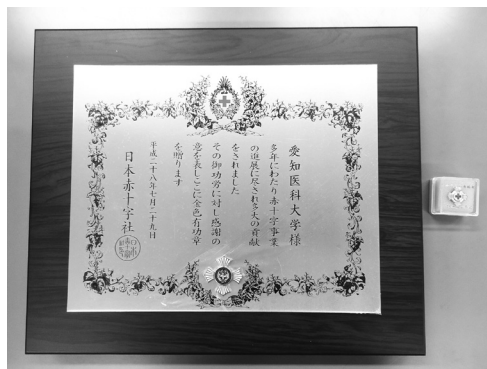 愛知医科大学様
多年にわたり赤十字事業
の進展に尽され多大の貢献
をされました
その御功労に対し感謝の
意を表しここに金色有功章
を贈ります
平成二十八年七月二十九日
日本赤十字社